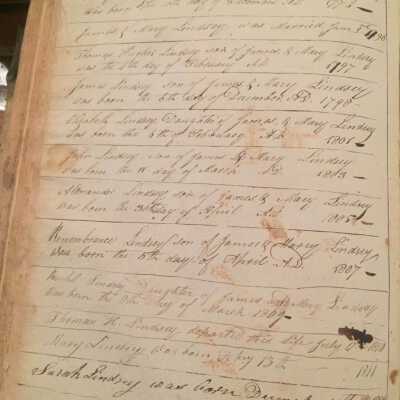 was born the day of December A.D. 
James & Mary Lindsey was Married June 1796
Thomas Lindsey son of James & Mary Lindsey
was the 8th day of February A.D. 1797
James Lindsey son of James & Mary Lindsey
was born the 6th day of December A.D. 1798
Elizabeth Lindsey Daughter of James & Mary Lindsey
was born the 5th of February A.D. 1801
John Lindsey son of James & Mary Lindsey
was born the 11 day of March AD. 1803
Alexander Lindsey son of James & Mary Lindsey
was born the day of April A.D. 1805
Remembrance Lindsey son of James & Mary Lindsey
was born the 5th day of April A.D. 1807
Lindsey Daughter of James & Mary Lindsey
was born the day of March 1809
Thomas H. Lindsey departed this life July
Mary Lindsey was born 13th 1811
Sarah Lindsey was born